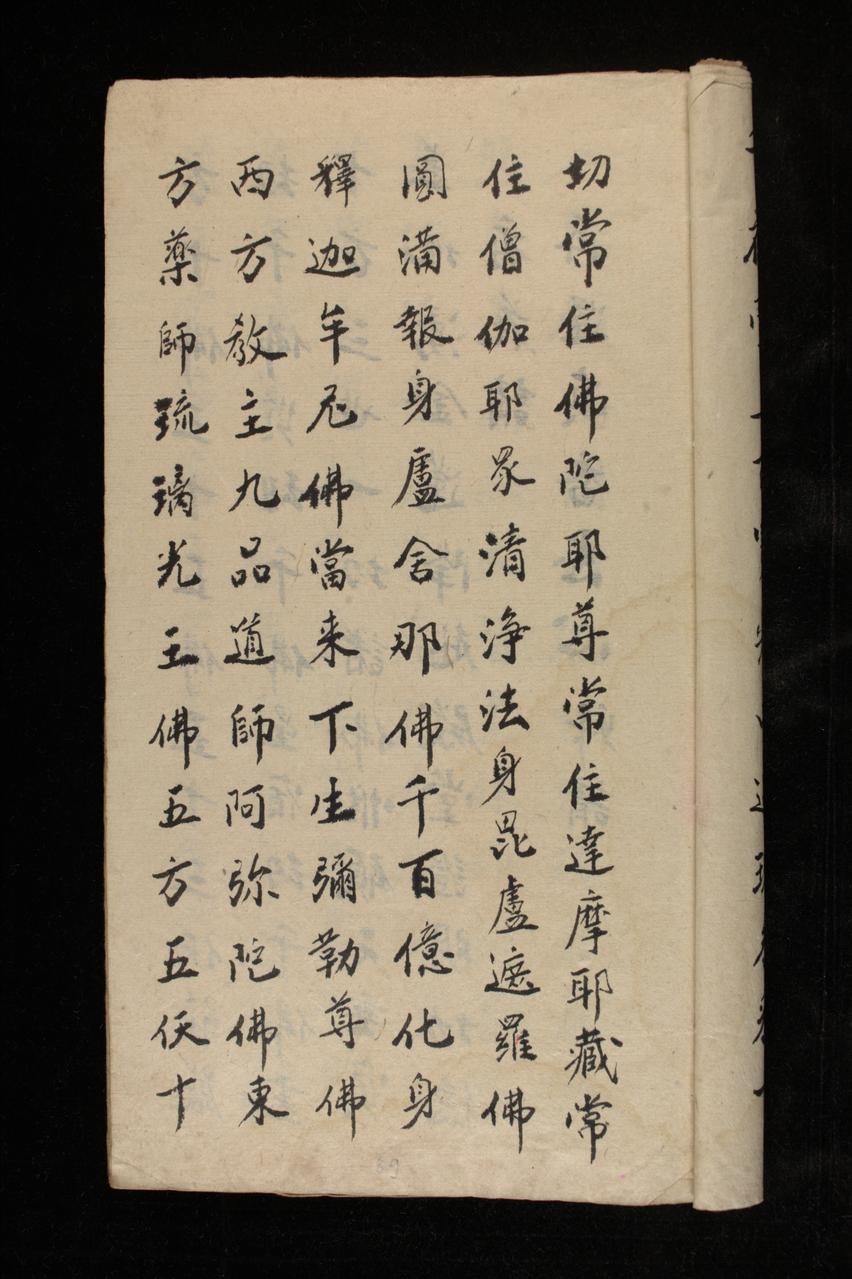 切常住佛陀耶尊常住達摩耶藏常
住僧伽耶眾清淨法身毘盧遮羅佛
圓滿報身盧舍那佛千百億化身
釋迦牟尼佛當来下生彌勒尊佛
西方教主九品道師阿弥陀佛東
方藥師琉璃光王佛五方五仸十